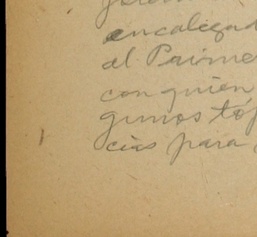 encalizad
al Paime
con quien
gunos tóp
cias para